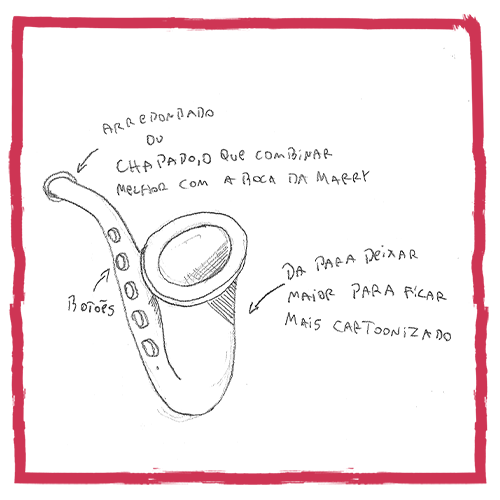 ARREDONDADO
OU
CHAPADO, O QUE COMBINAR
MELHOR COM A BOCA DA MARRY
BOTÕES
DA PARA DEIXAR
MAIOR PARA FICAR
MAIS CARTOONIZADO